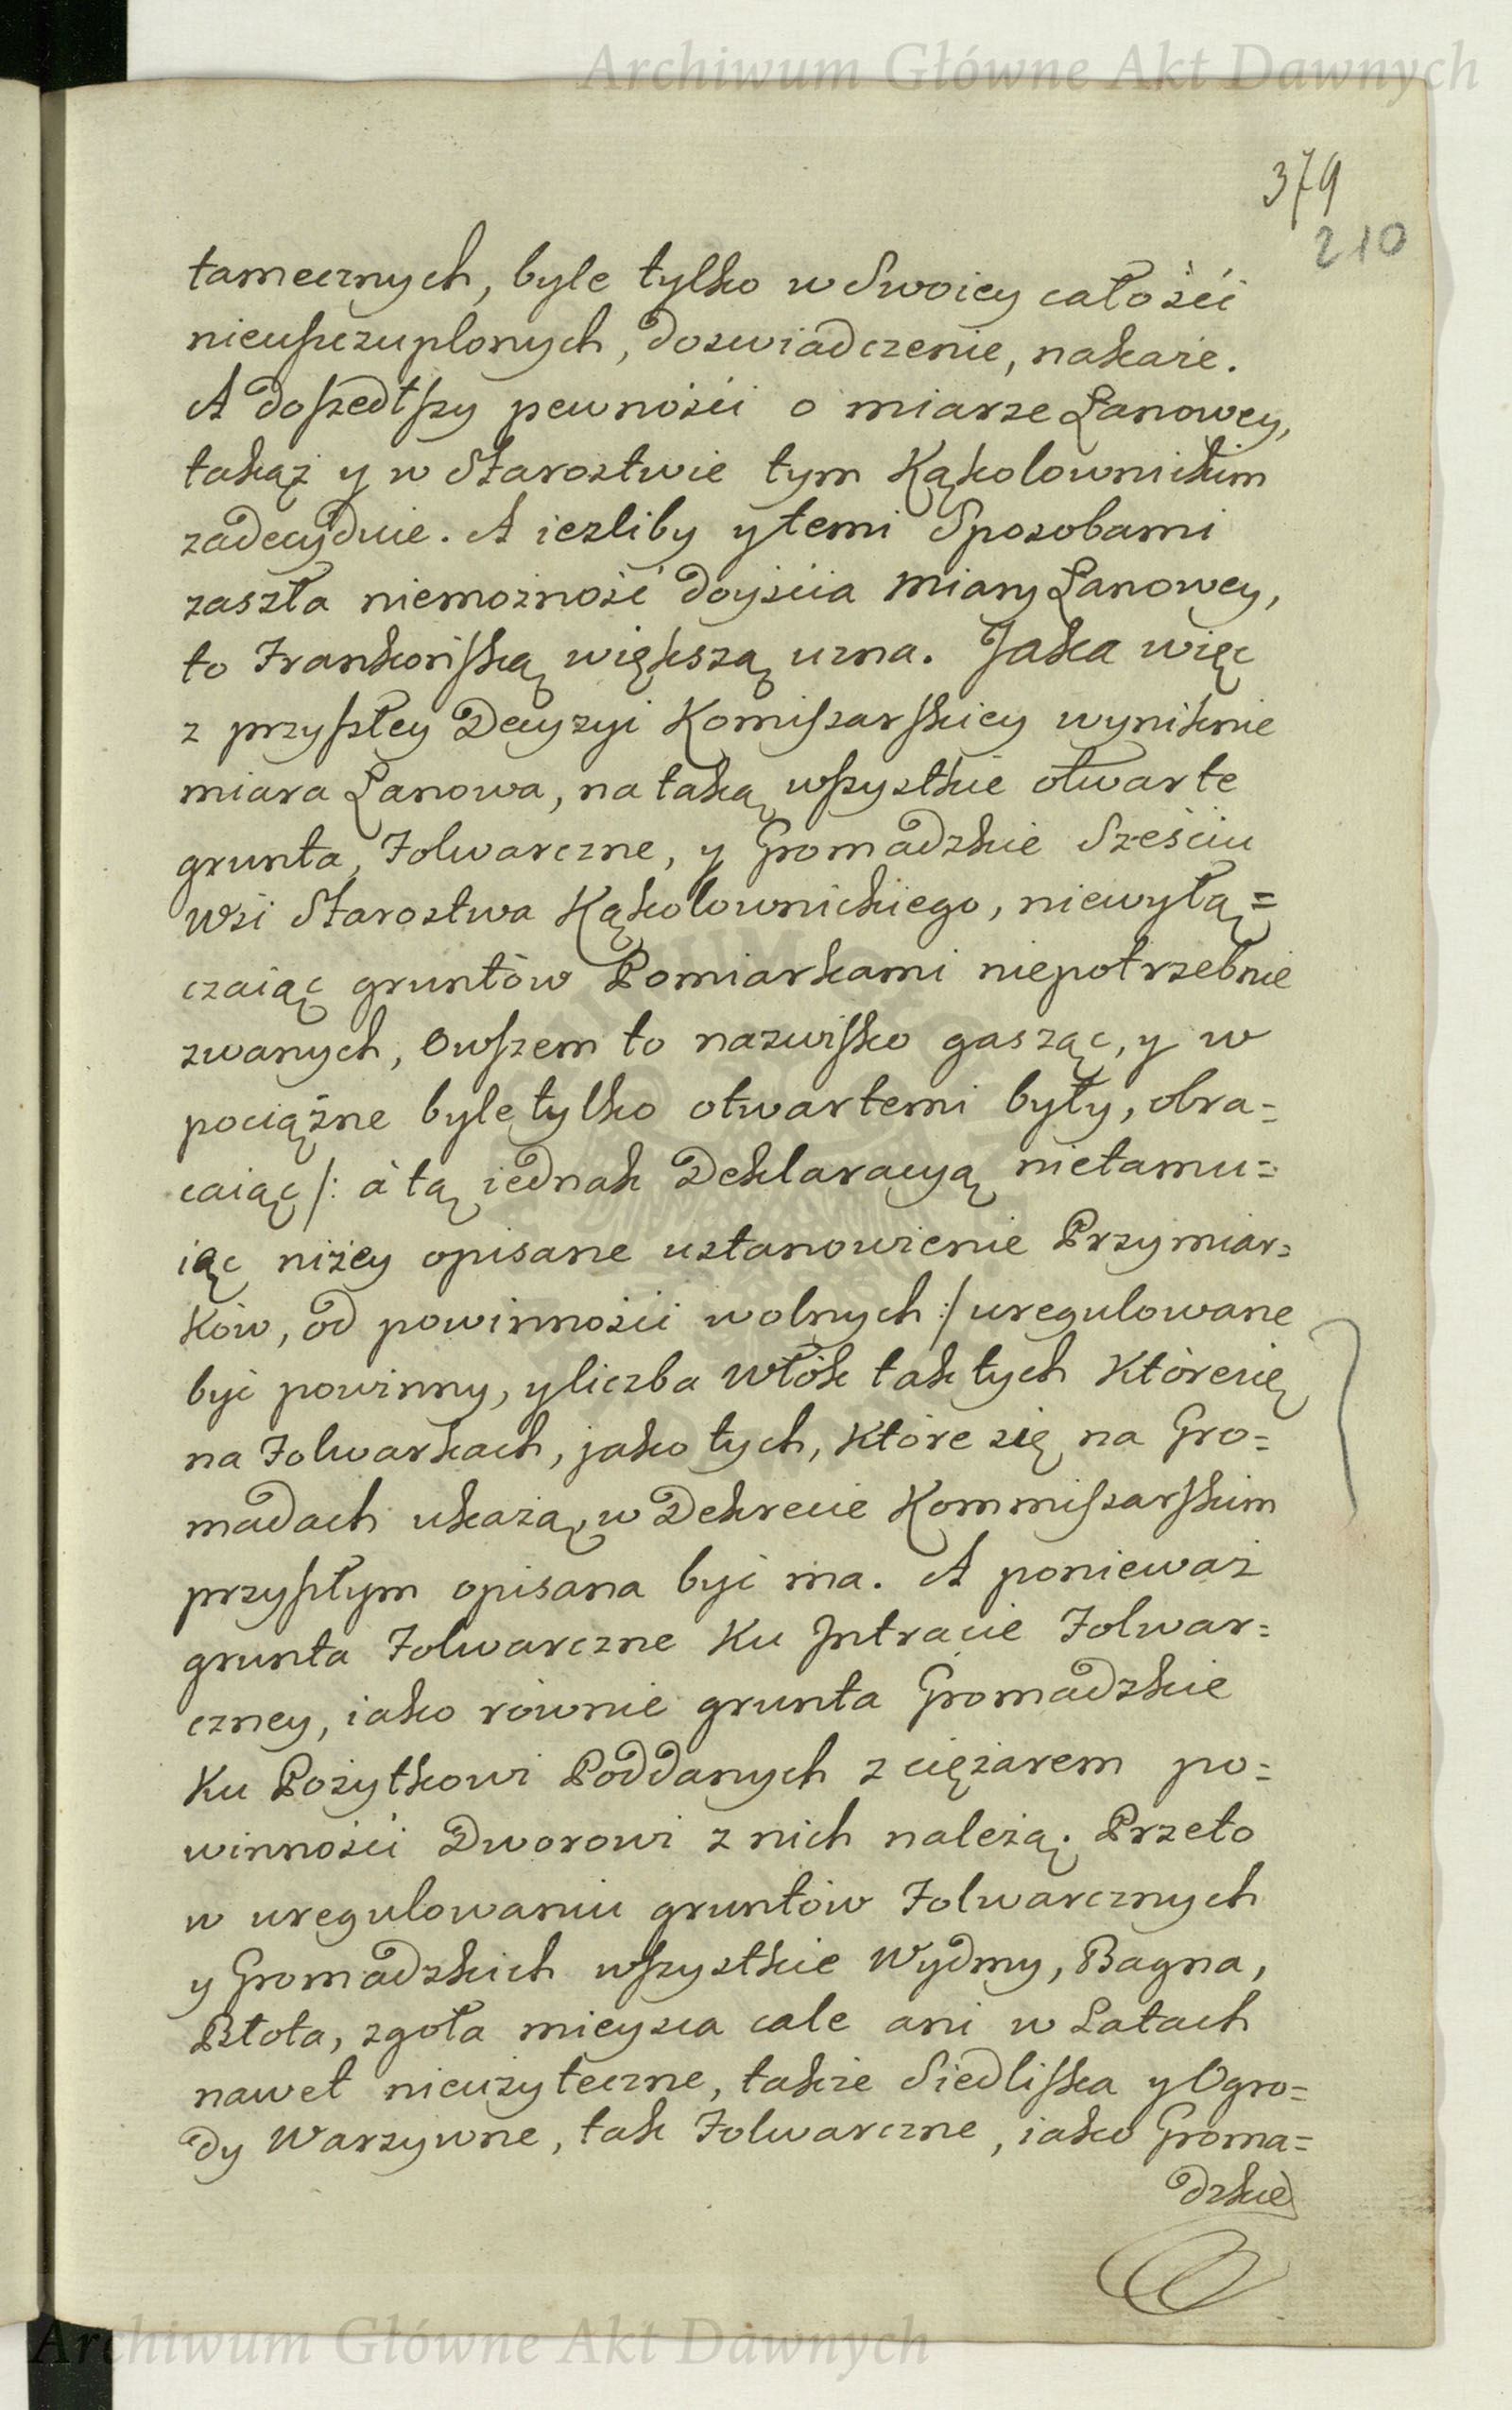 Archiwum Główne Akt Dawnych
379
210
tamecznych, byle tylko w Swoiey całośći
nieuszczuplonych, doswiadczenie, nakaże.
A doszedłszy pewnośći o miarze Łanowey,
takąż y w Starostwie tym Kąkolownickim
zadecyduie. A iezliby y temi Sposobami
zaszła niemożność doyśćia miary Łanowey,
to Frankońską większą uzna. Jaka więc
z przyszłey Decyzyi Komiszarskiey wyniknie
miara Łanowa, na taką wszystkie otwarte
grunta, Folwarczne, y Gromadzkie Sześciu
Wsi Starostwa Kąkolownickiego, niewyłą=
czaiąc gruntów Pomiarkami niepotrzebnie
zwanych, Owszem to nazwisko gasząc, y w
pociążne byle tylko otwartemi były, obra=
caiąc /: à tą iednak Deklaracyą nietamu=
iąc niżey opisane ustanowienie Przymiar=
ków, od powinnośći wolnych :/ uregulowane
być powinny, y liczba Włók tak tych któresię
na Folwarkach, jako tych, które się na Gro=
madach ukażą, w Dekrecie Kommiszarskim
przyszłym opisana być ma. A ponieważ
grunta Folwarczne ku Intracie Folwar=
czney, iako równie grunta Gromadzkie
ku Pożytkowi Poddanych z ciężarem po=
winnośći Dworowi z nich należą. Przeto
w uregulowaniu gruntów Folwarcznych
y Gromadzkich wszystkie Wydmy, Bagna,
Błota, zgoła mieysca cale ani w Latach
nawet nieużyteczne, takze Siedliska y Ogro=
dy Warzywne, tak Folwarczne, iako Groma=
dzkie
Archiwum Główne Akt Dawnych